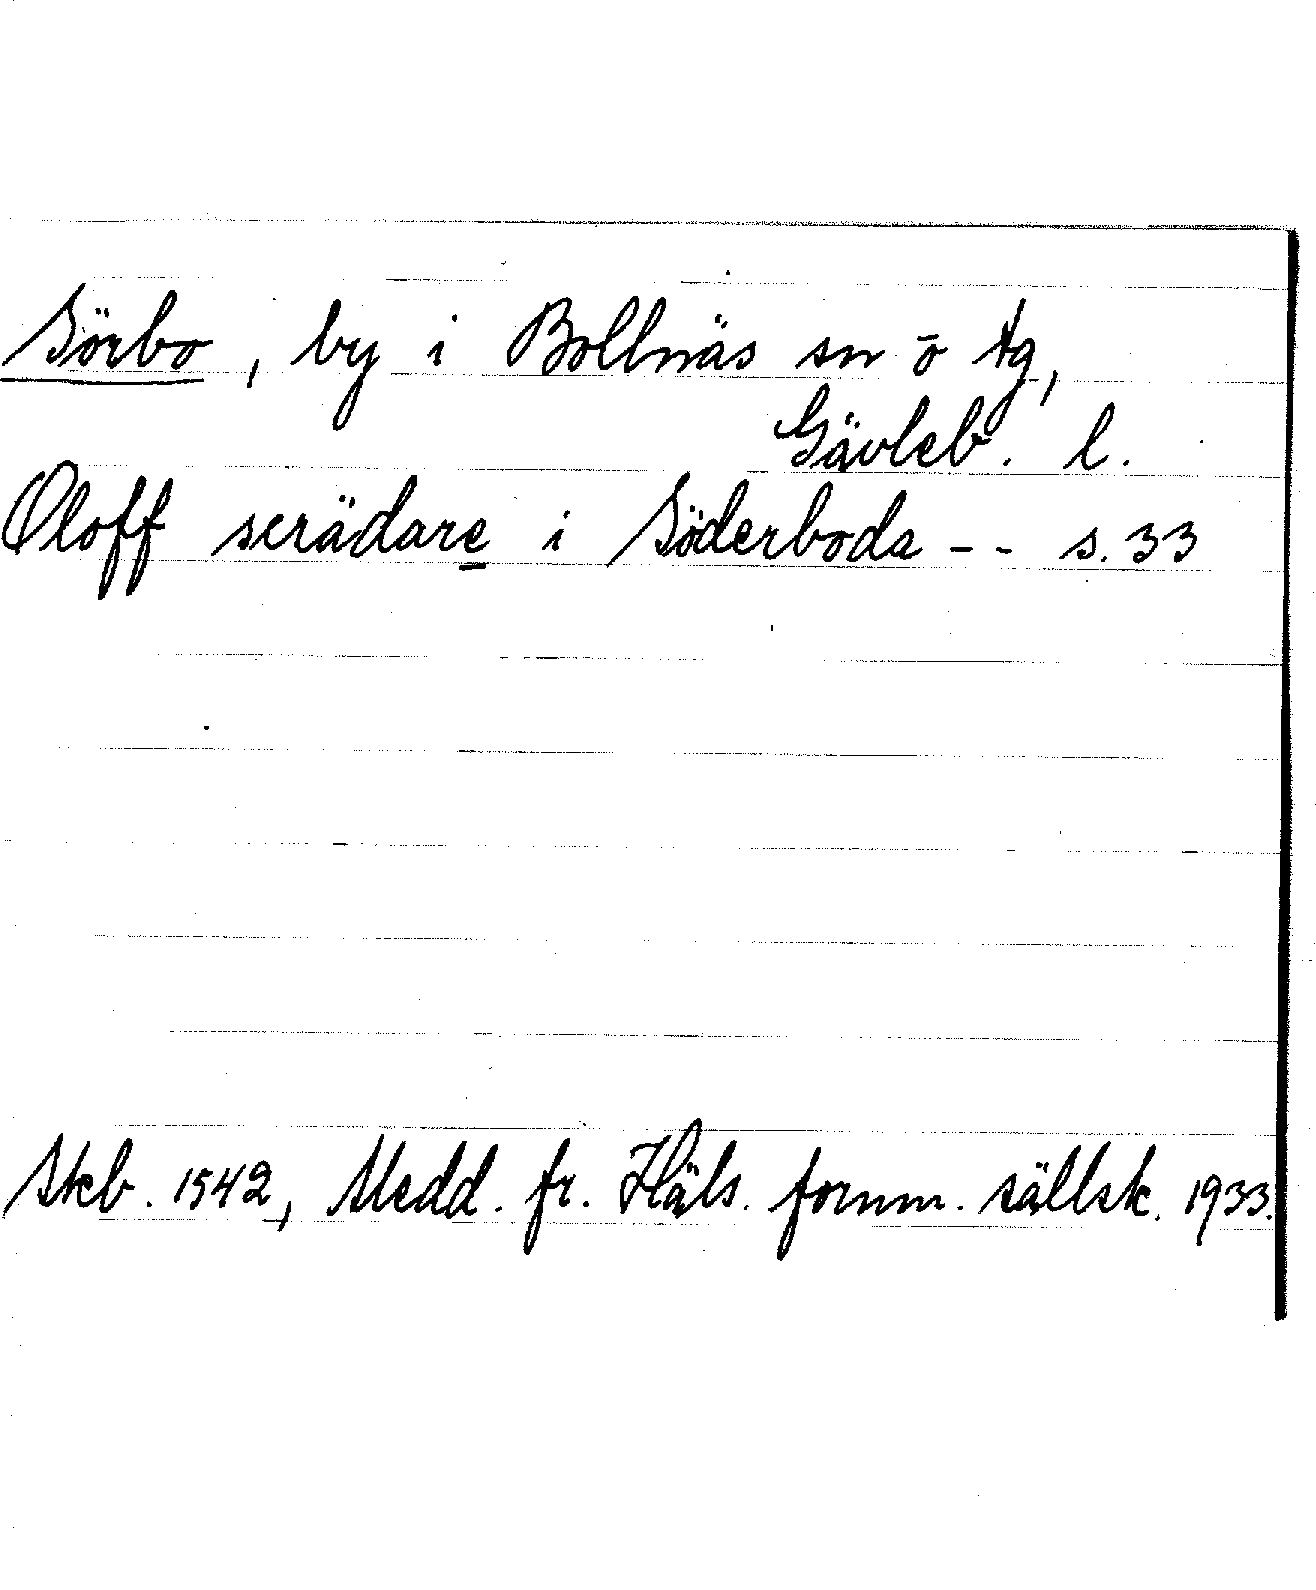 Sörbo, by i Bollnäs sn o tg,
Gävleb. l.
Oloff scrädare i Söderboda -- s. 33
Skb. 1542, Medd. fr. Häls. fornm. sällsk. 1933.